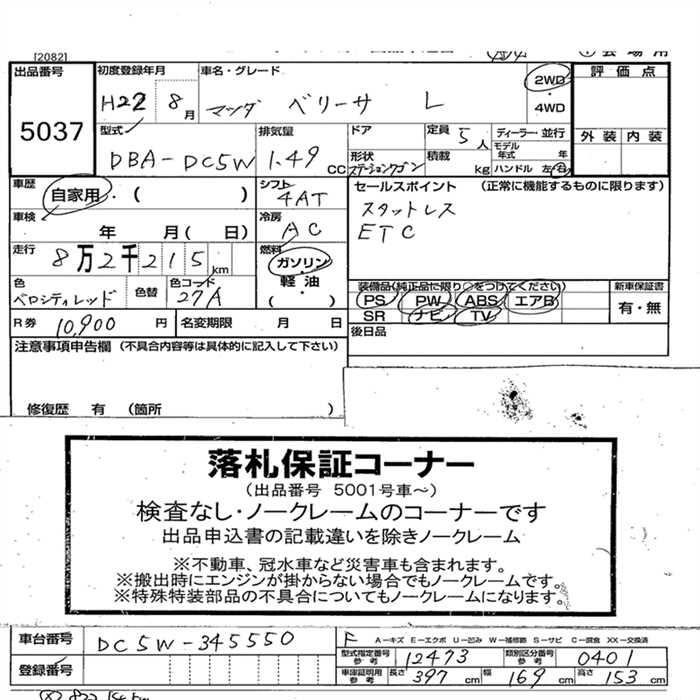 [2082]
出品番号
5037
初度登録年月
H22 8月
車名・グレード
マツダ ベリーサ L
2WD
・
4WD
評価点
外装 内装
型式
DBA-DC5W
排気量
1.49 CC
ドア
形状
ステーションワゴン
定員 5人
積載 kg
ディーラー・並行
モデル
年式 年
ハンドル 左・右
車歴
自家用・( )
シフト
4AT
セールスポイント (正常に機能するものに限ります)
スタットレス
ETC
車検
年 月( 日)
冷房
AC
走行
8万2千215km
燃料
ガソリン
・
軽油
( )
色
ベロシティレッド
色替
色コード
27A
装備品(純正品に限り○をつけてください)
PS PW ABS エアB
SR ナビ TV
新車保証書
有・無
R券 10,900 円
名変期限 月 日
後日品
注意事項申告欄 (不具合内容等は具体的に記入して下さい)
修復歴 有 (箇所 )
落札保証コーナー
(出品番号 5001号車～)
検査なし・ノークレームのコーナーです
出品申込書の記載違いを除きノークレーム
※不動車、冠水車など災害車も含まれます。
※搬出時にエンジンが掛からない場合でもノークレームです。
※特殊特装部品の不具合についてもノークレームになります。
車台番号
DC5W-345550
F A-キズ E-エクボ U-凹み W-補修跡 S-サビ C-腐食 XX-交換済
型式指定番号
参考
12473
類別区分番号
参考
0401
登録番号
車庫証明用
参考
長さ 397 cm 幅 169 cm 高さ 153 cm